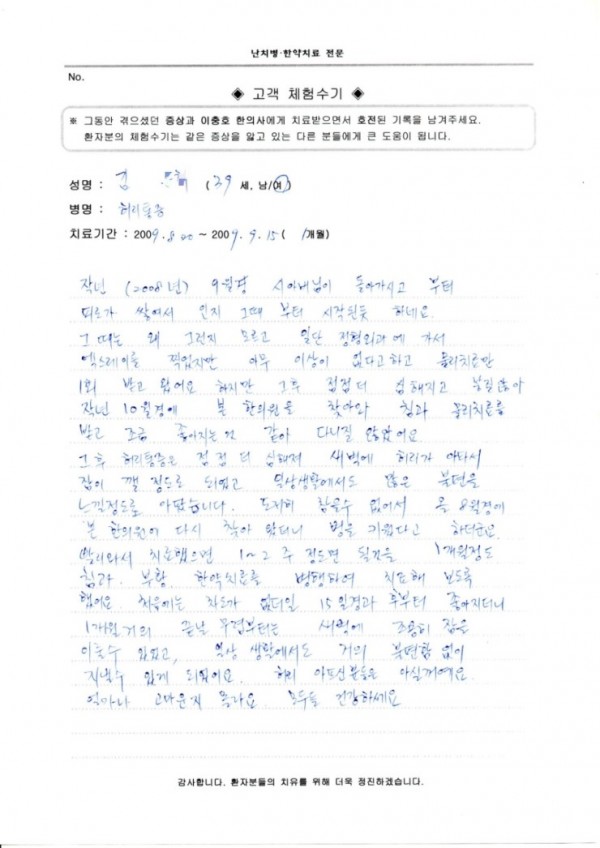 난치병·한약치료 전문
No.
◈ 고객 체험수기 ◈
※ 그동안 겪으셨던 증상과 이충호 한의사에게 치료받으면서 호전된 기록을 남겨주세요.
환자분의 체험수기는 같은 증상을 앓고 있는 다른 분들에게 큰 도움이 됩니다.
성명 : 김 (39 세, 남/여)
병명 : 허리통증
치료기간 : 2009. 8 ~ 2009. 9. 15 ( 1개월)
작년 (2008년) 9월경 시아버님이 돌아가시고 부터
피로가 쌓여서 인지 그때 부터 시작된듯 하네요.
그때는 왜 그런지 모르고 일단 정형외과에 가서
엑스레이를 찍었지만 아무 이상이 없다고하고 물리치료만
1회 받고 왔어요 하지만 그후 점점더 심해지고
작년 10월경에 본 한의원을 찾아와 침과 물리치료를
받고 조금 좋아지는것 같아 다니질 않았어요.
그후 허리통증은 점점 더 심해져 새벽에 허리가 아파서
잠이 깰 정도로 되었고 일상생활에서도 많은 불편을
느낄정도로 아팠습니다. 도저히 참을수 없어서 올 8월경에
본 한의원에 다시 찾아 왔더니 병을 키웠다고 하더군요.
빨리와서 치료했으면 1~2주 정도면 될것을 1개월정도
침과. 부항. 한약치료를 병행하여 치료해 보도록
했어요. 처음에는 차도가 없더니 15일경과 후부터 좋아지더니
1개월 거의 끝날 무렵부터는 새벽에 조용히 잠을
이룰수 있었고, 일상 생활에서도 거의 불편함 없이
지낼수 있게 되었어요. 허리 아프신분들은 아실꺼예요.
얼마나 고마운지 몰라요. 모두들 건강하세요
감사합니다. 환자분들의 치유를 위해 더욱 정진하겠습니다.